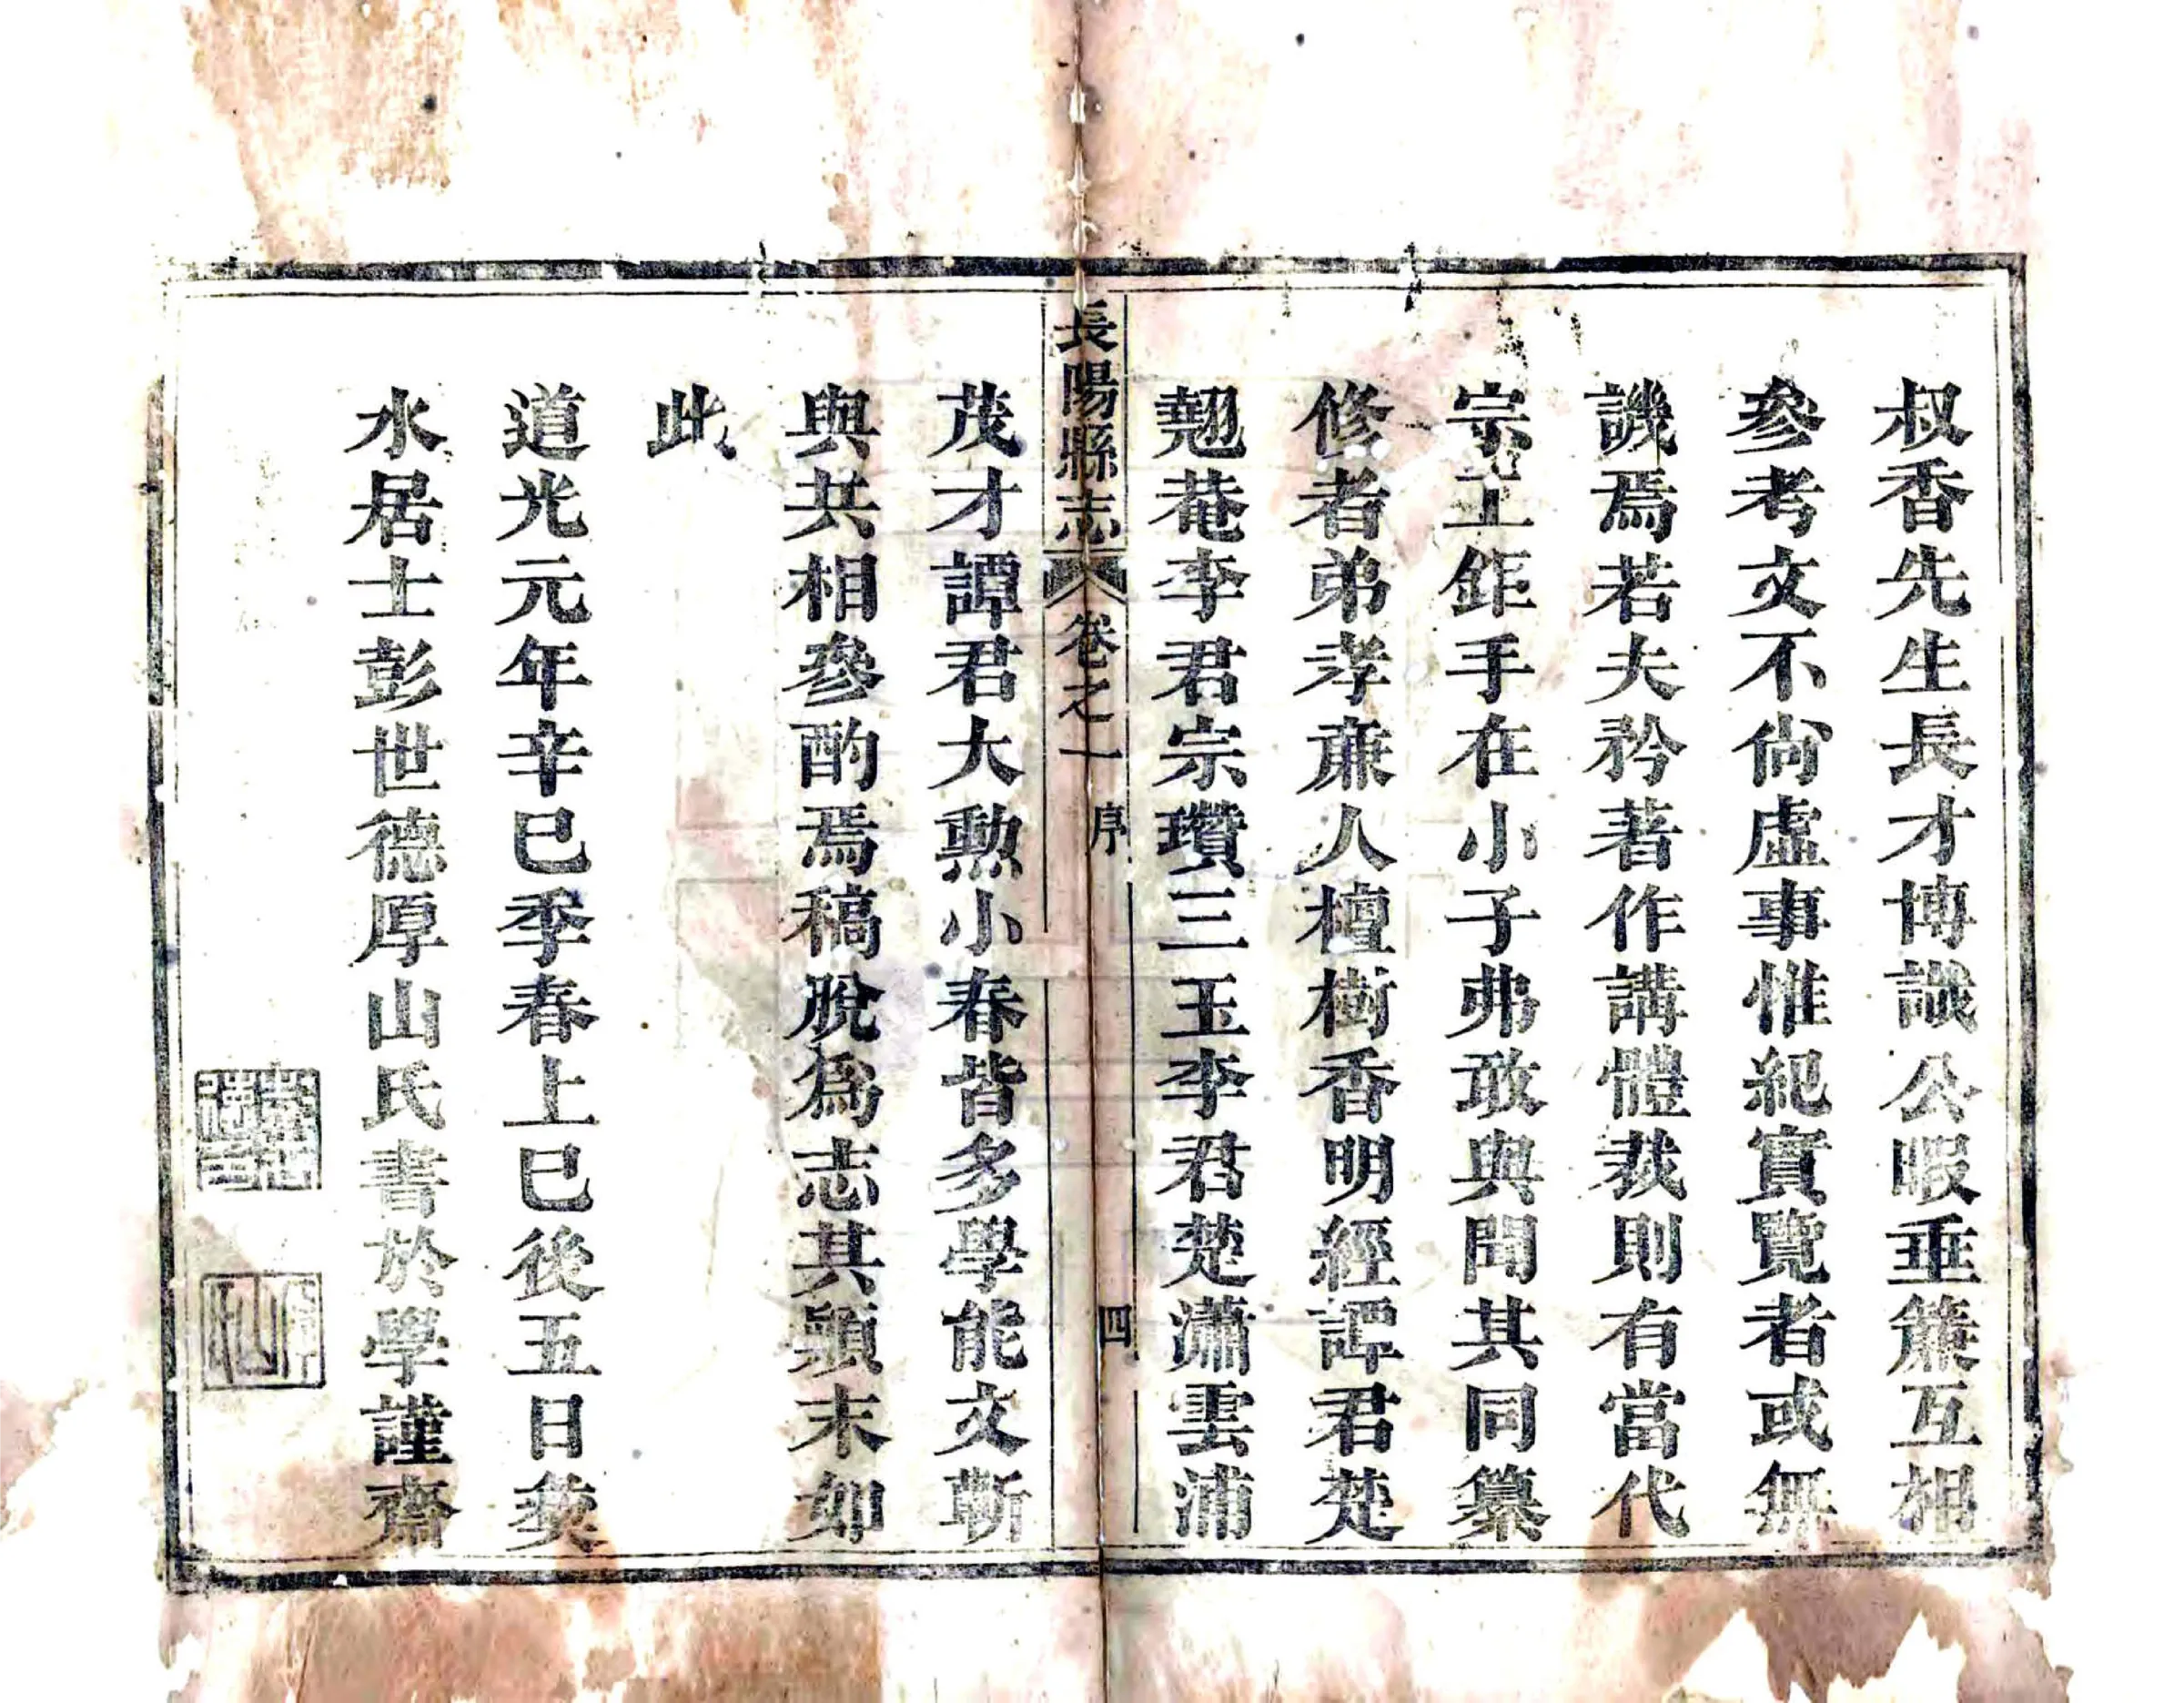 叔香先生長才博識公暇垂簾互相
參考文不尙虛事惟紀實覽者或無
譏焉若夫矜著作講體裁則有當代
宗工鉅手在小子弗敢與聞其同纂
修者弟孝亷人檀樹香明經譚君楚
翹菴李君宗瓚三玉李君楚瀟雲浦
長陽縣志 卷之一 序 四
茂才譚君大勲小春皆多學能文斬
與共相參酌焉稿脫為志其顚末如
此
道光元年辛巳季春上巳後五日𤎖
水居士彭世德厚山氏書於學謹齋